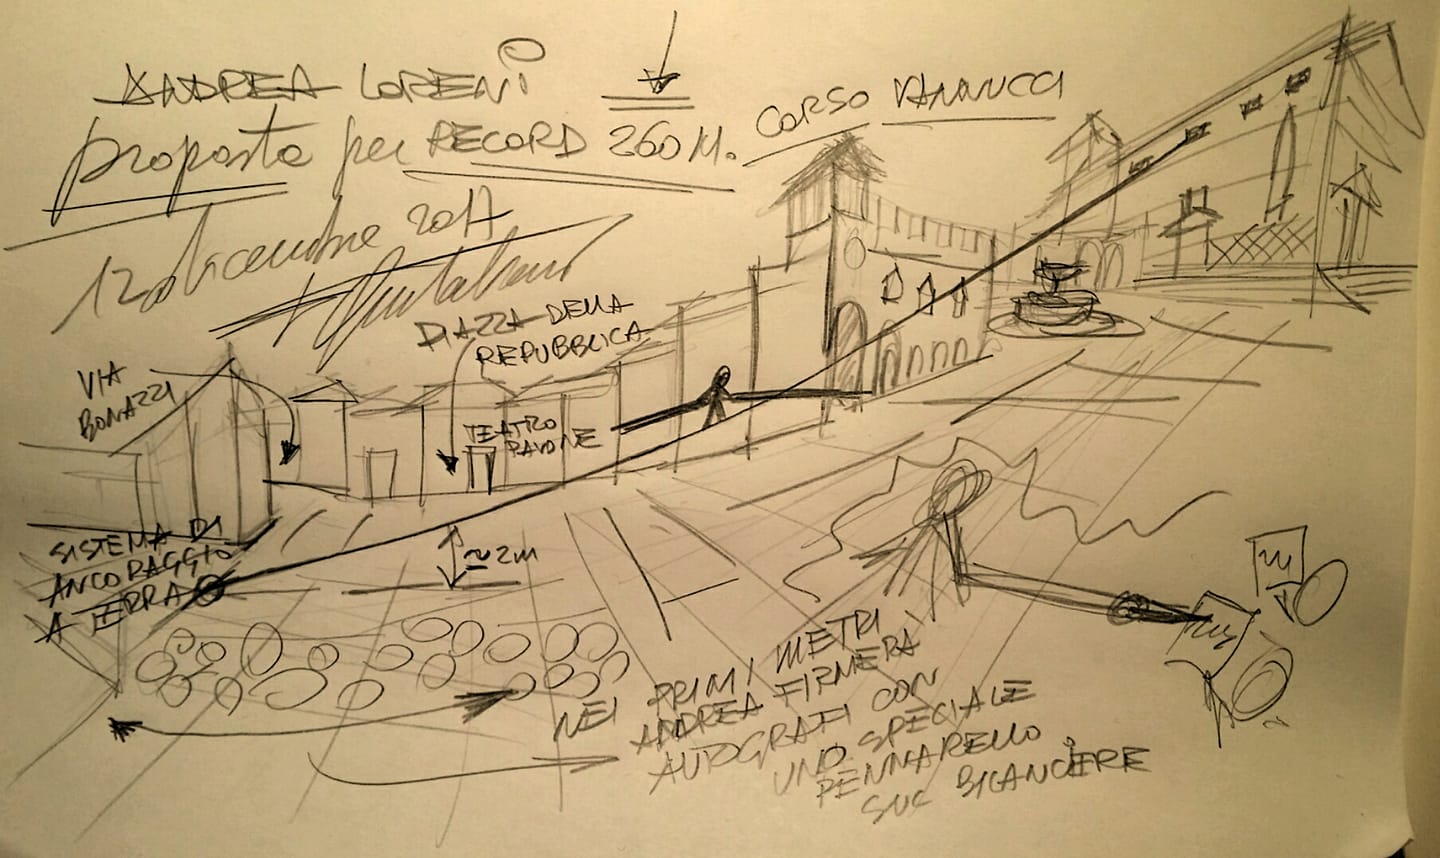 ANDREA LORENI
proposta per RECORD 260 M.
CORSO VANNUCCI
12 dicembre 2017
PIAZZA DELLA
REPUBBLICA
VIA
BONAZZI
TEATRO
PAVONE
SISTEMA DI
ANCORAGGIO
A TERRA
≈ 2m
NEI PRIMI METRI
ANDREA FIRMERÀ
AUTOGRAFI CON
UNO SPECIALE
PENNARELLO
SUL BILANCIERE